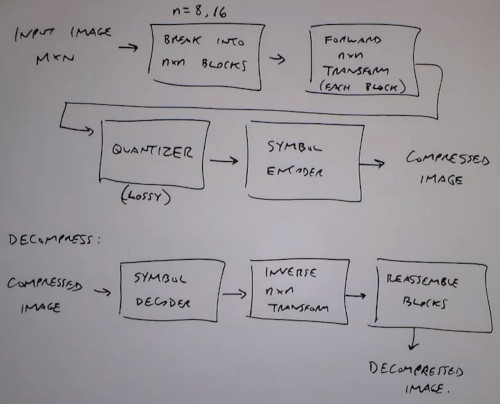 n = 8, 16
INPUT IMAGE
M×N
BREAK INTO
n×n BLOCKS
FORWARD
n×n
TRANSFORM
(EACH BLOCK)
QUANTIZER
(LOSSY)
SYMBOL
ENCODER
COMPRESSED
IMAGE
DECOMPRESS:
COMPRESSED
IMAGE
SYMBOL
DECODER
INVERSE
n×n
TRANSFORM
REASSEMBLE
BLOCKS
DECOMPRESSED
IMAGE.